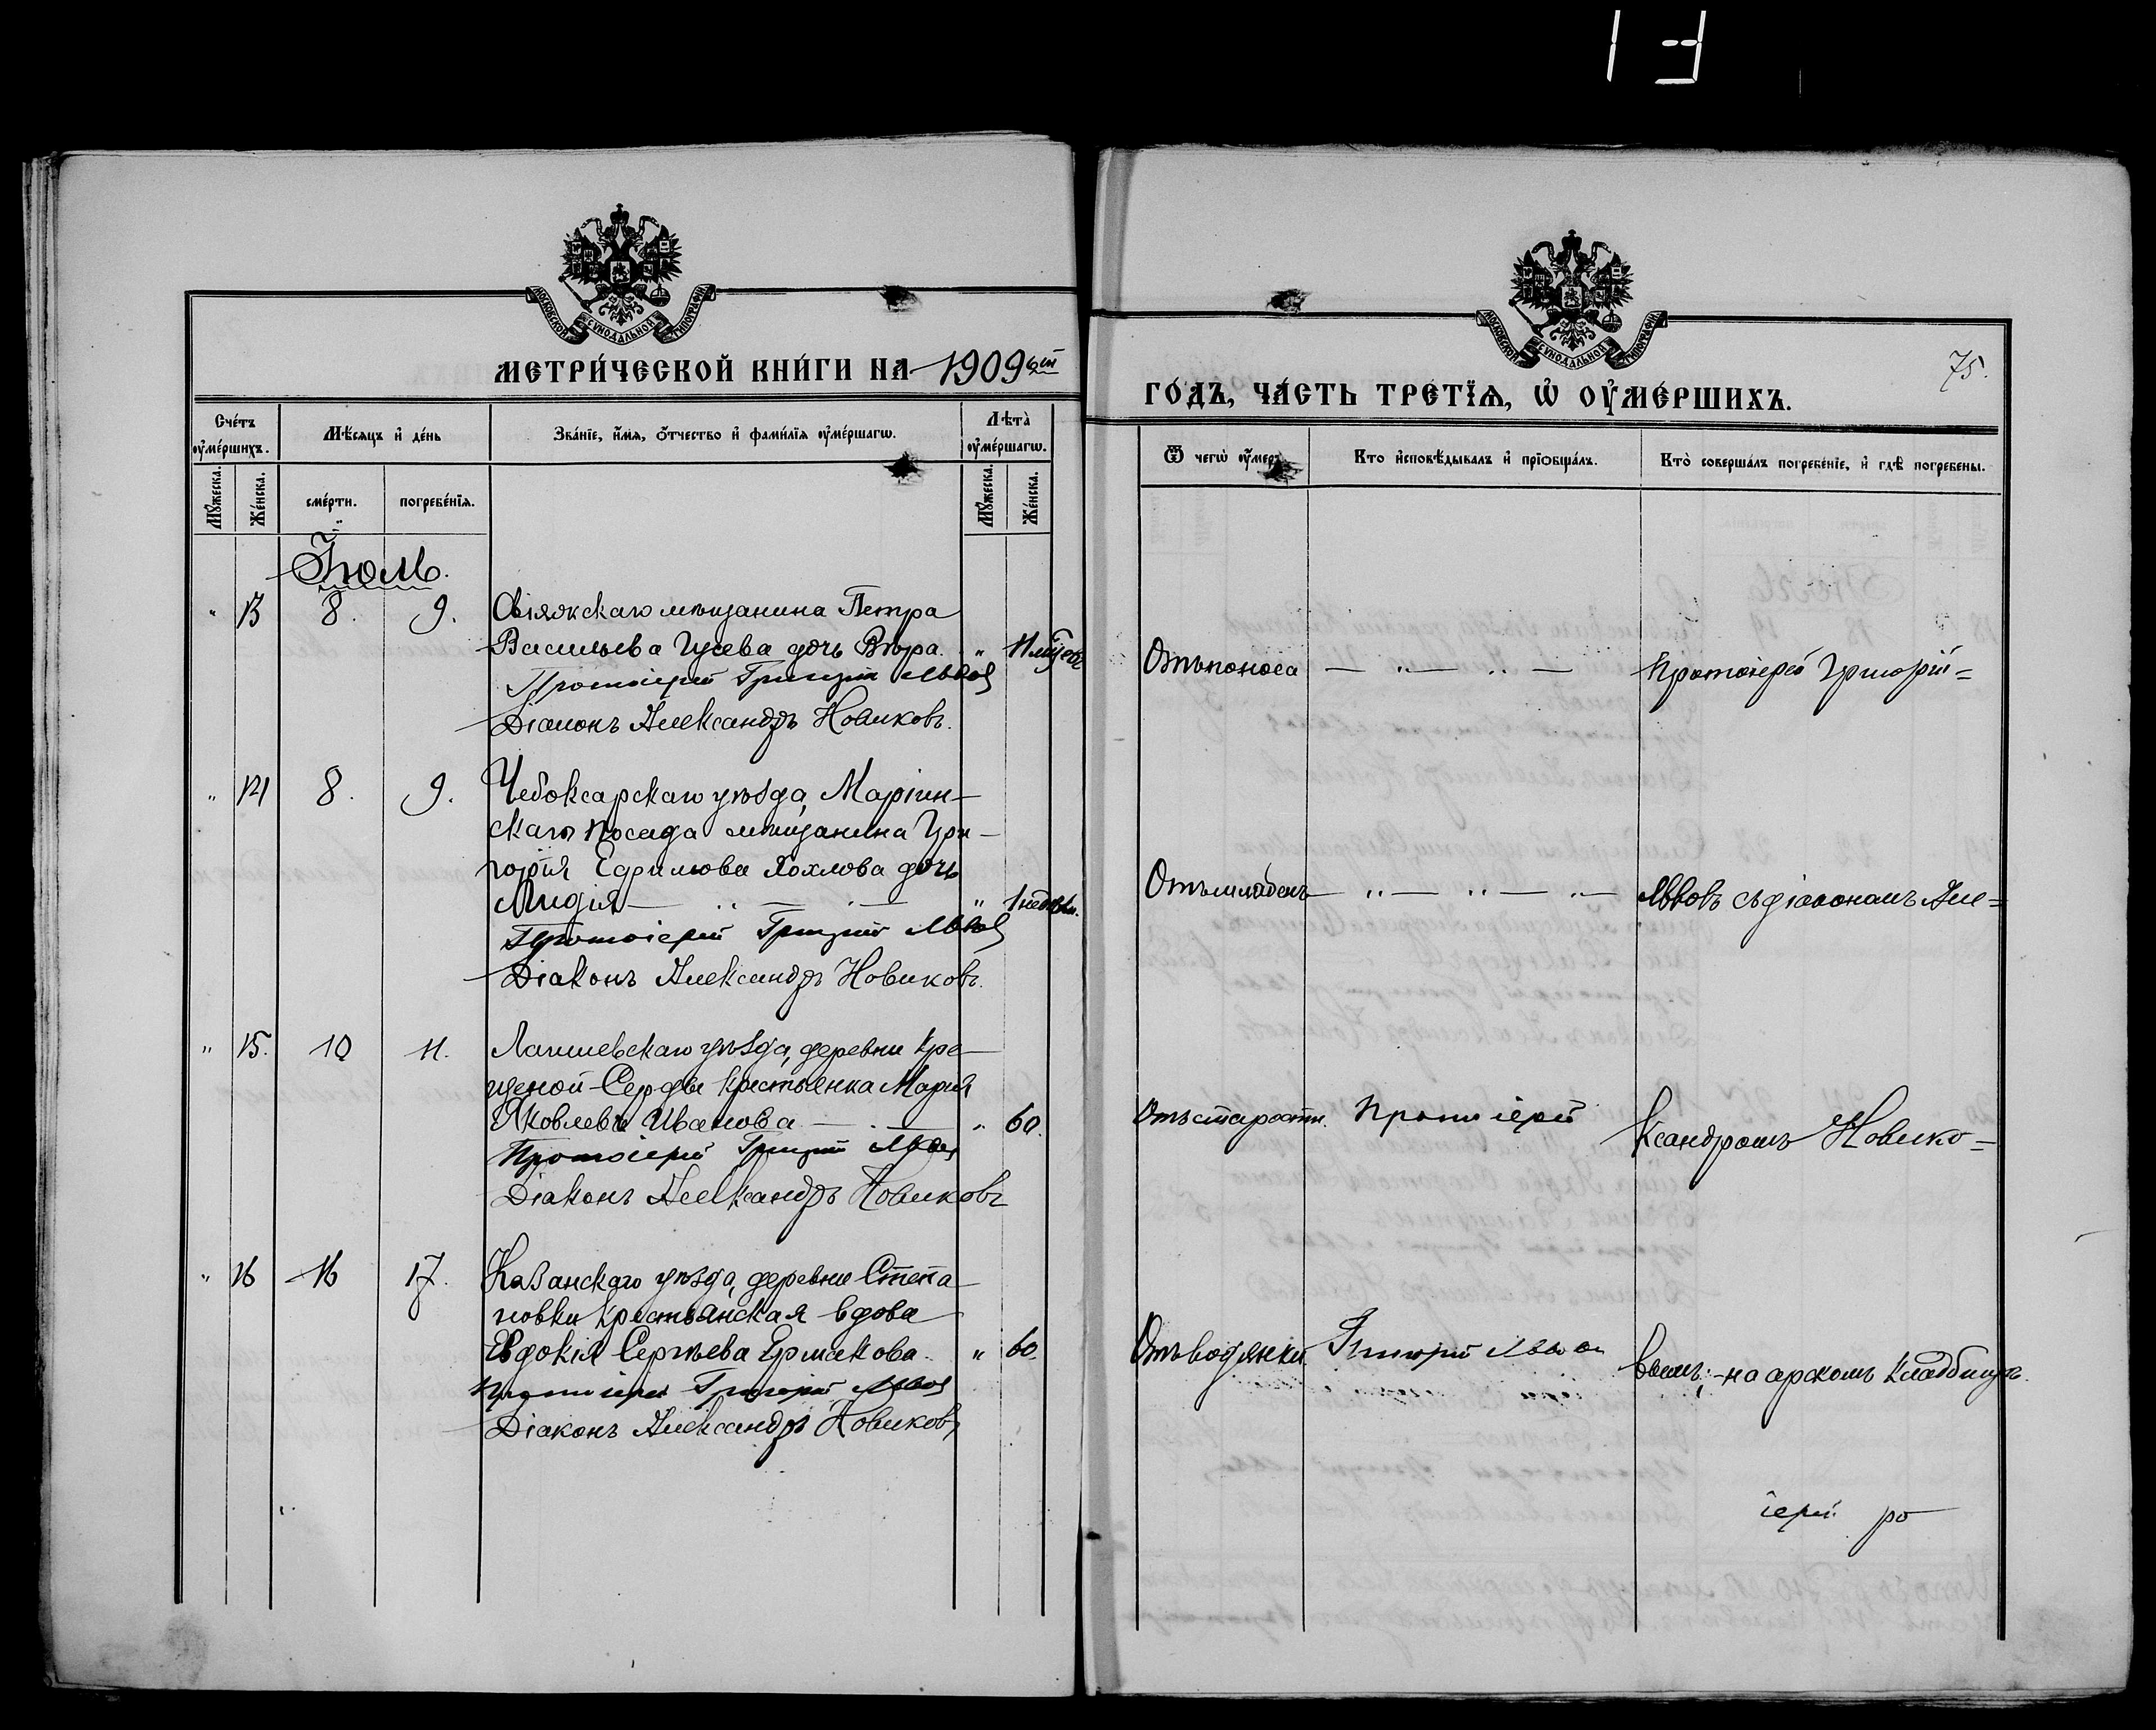 МОСКОВСКОЙ СѴНОДАЛЬНОЙ ТИПОГРАФІИ
МЕТРИ́ЧЕСКОЙ КНИ́ГИ НА 1909 ый
Сче́тъ оу҆ме́ршихъ.
Мѣ́сяцъ и҆ де́нь
Зва́нїе, и҆́мѧ, ѻ҆́тчество и҆ фами́лїѧ оу҆ме́ршагѡ.
Лѣта̀ оу҆ме́ршагѡ.
Мꙋ́жеска.
Же́нска.
сме́рти.
погребе́нїѧ.
Мꙋ́жеска.
Же́нска.
Іюль.
" 13 8. 9. Свіяжскаго мѣщанина Петра
Васильева Гусева дочь Вѣра. "
Протоіерей Григорій Львов
Діаконъ Александръ Новиковъ.
" 14 8. 9. Чебоксарскаго уѣзда, Маріин-
скаго посада мѣщанина Гри-
горія Ефимова Хохлова дочь
Лидія " 1 недѣли.
Протоіерей Григорій Львов
Діаконъ Александръ Новиковъ.
" 15. 10 11. Лаишевскаго уѣзда, деревни Кре-
щеной-Серды крестьянка Марія
Яковлева Иванова " 60.
Протоіерей Григорій Львов
Діаконъ Александръ Новиковъ
" 16 16 17. Казанскаго уѣзда, деревни Степа-
новки крестьянская вдова
Евдокія Сергѣева Ермакова. " 60.
Протоіерей Григорій Львов
Діаконъ Александръ Новиковъ
13
МОСКОВСКОЙ СѴНОДАЛЬНОЙ ТИПОГРАФІИ
75.
ГО́ДЪ, ЧА́СТЬ ТРЕ́ТЇѦ, Ѡ҆ ОУ҆МЕ́РШИХЪ.
Ѿ чегѡ̀ оу҆́меръ
Кто̀ и҆сповѣ́дывалъ и҆ прїѻбща́лъ.
Кто̀ соверша́лъ погребе́нїе, и҆ гдѣ̀ погребены.
Отъ поноса — " — " — Протоіерей Григорій=
Отъ младен. — " — " — " — Львовъ съ діакономъ Але=
Отъ старости. Протоіерей
ксандромъ Новико=
Отъ водянки Григорій Львов
вымъ;- на арскомъ кладбищѣ.
іерей ро